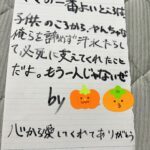 ママの一番よいところは
子供のころから、やんちゃな
俺らを諦めず汗水たらし
て、必死に支えてくれたこと
だよ。もう一人じゃないぜ
by
心から愛してくれてありがとう